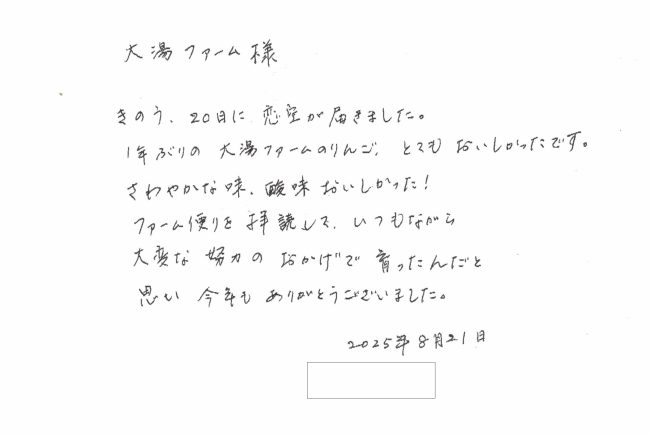 大湯ファーム様
きのう、20日に恋空が届きました。
1年ぶりの大湯ファームのりんご、とてもおいしかったです。
さわやかな味、酸味おいしかった!
ファーム便りを拝読して、いつもながら
大変な努力のおかげで育ったんだと
思い今年もありがとうございました。
2025年8月21日